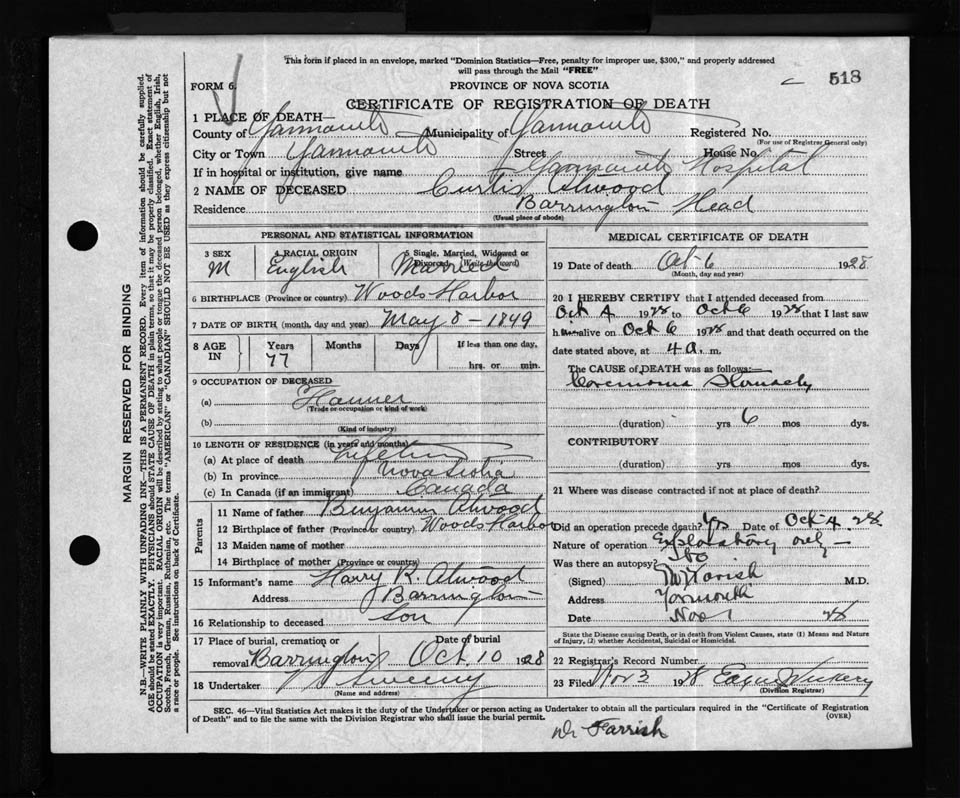 This form if placed in an envelope, marked "Dominion Statistics—Free, penalty for improper use, $300," and properly addressed
will pass through the Mail "FREE"
518
FORM 6.
PROVINCE OF NOVA SCOTIA
CERTIFICATE OF REGISTRATION OF DEATH
1 PLACE OF DEATH—
County of Yarmouth Municipality of Yarmouth Registered No.
(For use of Registrar General only)
City or Town Yarmouth Street House No.
If in hospital or institution, give name Yarmouth Hospital
2 NAME OF DECEASED Curtis Atwood
Residence Barrington Head
(Usual place of abode)
PERSONAL AND STATISTICAL INFORMATION
3 SEX 4 RACIAL ORIGIN 5 Single, Married, Widowed or Divorced (Write the word)
M English Married
6 BIRTHPLACE (Province or country) Woods Harbor
7 DATE OF BIRTH (month, day and year) May 8 - 1849
8 AGE IN Years Months Days If less than one day,
77 hrs. or min.
9 OCCUPATION OF DECEASED
(a)
(Trade or occupation or kind of work)
(b)
(Kind of industry)
10 LENGTH OF RESIDENCE (in years and months)
(a) At place of death Lifetime
(b) In province Nova Scotia
(c) In Canada (if an immigrant) Canada
Parents
11 Name of father Benjamin Atwood
12 Birthplace of father (Province or country) Woods Harbor
13 Maiden name of mother
14 Birthplace of mother (Province or country)
15 Informant's name Harry R. Atwood
Address Barrington
16 Relationship to deceased Son
17 Place of burial, cremation or removal Barrington Date of burial Oct. 10 1928
18 Undertaker Sweeny
(Name and address)
MEDICAL CERTIFICATE OF DEATH
19 Date of death Oct 6 1928
(Month, day and year)
20 I HEREBY CERTIFY that I attended deceased from
Oct 4 1928 to Oct 6 1928 that I last saw
h im alive on Oct 6 1928 and that death occurred on
date stated above, at 4 a. m.
The CAUSE of DEATH was as follows:—
Stomach
(duration) yrs 6 mos dys.
CONTRIBUTORY
(duration) yrs mos dys.
21 Where was disease contracted if not at place of death?
Did an operation precede death? Yes Date of Oct 4. 28
Nature of operation Exploratory only —
Was there an autopsy? No
(Signed) Farish M.D.
Address Yarmouth
Date Nov 1 28
State the Disease causing Death, or in death from Violent Causes, state (1) Means and Nature
of Injury, (2) whether Accidental, Suicidal or Homicidal.
22 Registrar's Record Number
23 Filed Nov 3 1928
(Division Registrar)
SEC. 46—Vital Statistics Act makes it the duty of the Undertaker or person acting as Undertaker to obtain all the particulars required in the "Certificate of Registration
of Death" and to file the same with the Division Registrar who shall issue the burial permit.
(OVER)
Dr Farrish
MARGIN RESERVED FOR BINDING
N.B.—WRITE PLAINLY WITH UNFADING INK—THIS IS A PERMANENT RECORD. Every item of information should be carefully supplied.
AGE should be stated EXACTLY. PHYSICIANS should STATE CAUSE OF DEATH in plain terms, so that it may be properly classified. Exact statement of
OCCUPATION is very important. RACIAL ORIGIN will be described by stating to what people or tongue the deceased person belonged, whether English, Irish,
Scotch, French, German, Russian, Ruthenian, etc. The terms "AMERICAN" or "CANADIAN" SHOULD NOT BE USED as they express citizenship but not
a race or people. See instructions on back of Certificate.